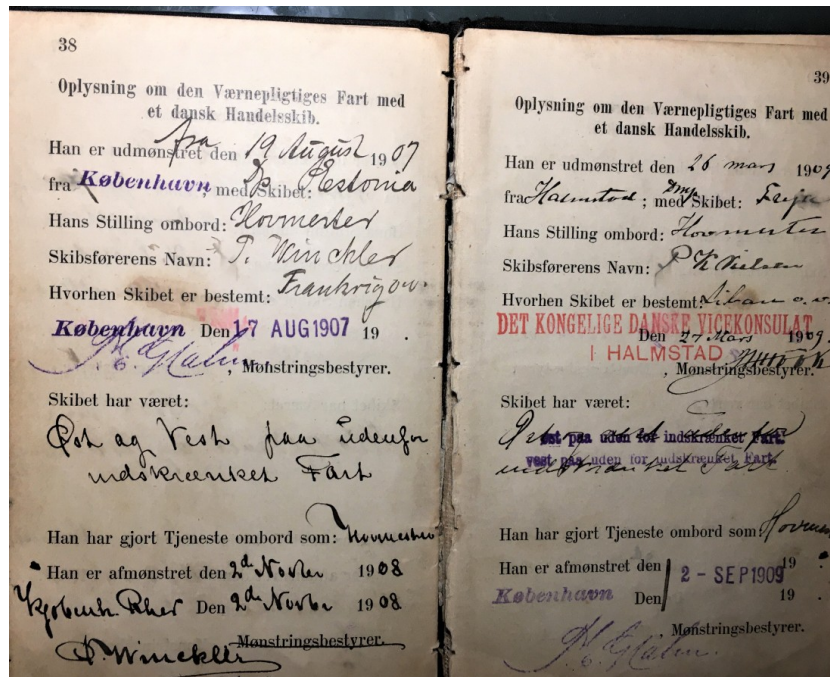 38
Oplysning om den Værnepligtiges Fart med
et dansk Handelsskib.
fra
Han er udmønstret den 19 August 1907
fra København, med Skibet: Ds Estonia
Hans Stilling ombord: Hovmester
Skibsførerens Navn: P. Winckler
Hvorhen Skibet er bestemt: Frankrig o.v.
København Den 17 AUG 1907 19 .
, Mønstringsbestyrer.
Skibet har været:
Øst og Vest paa udenfor
indskrænket Fart
Han har gjort Tjeneste ombord som: Hovmester
Han er afmønstret den 2d Novbr 1908
Kjøbenh. Rhed Den 2d Novbr 1908
Mønstringsbestyrer.
P. Winckler
39
Oplysning om den Værnepligtiges Fart med
et dansk Handelsskib.
Han er udmønstret den 26 mars 1909
fra Halmstad; med Skibet: Freja
Hans Stilling ombord: Hovmester
Skibsførerens Navn: P K Nielsen
Hvorhen Skibet er bestemt: Libau o.v.
DET KONGELIGE DANSKE VICEKONSULAT
Den 27 Mars 1909.
I HALMSTAD
, Mønstringsbestyrer.
Skibet har været:
øst paa uden for indskrænket Fart.
vest paa uden for indskrænket Fart.
indskrænket Fart.
Han har gjort Tjeneste ombord som:
Han er afmønstret den 2 - SEP 1909 19 .
København Den 19 .
Mønstringsbestyrer.